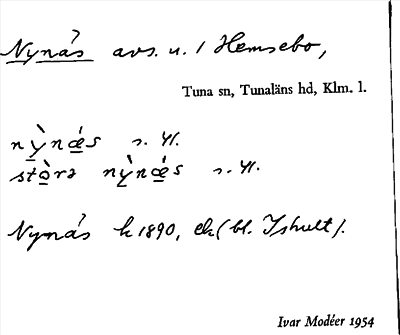 Nynäs avs. u. / Hemsebo,
Tuna sn, Tunaläns hd, Klm. l.
nỳ̠nǽ̠s s. 41.
stò̠rə nỳ̠nǽ̠s s. 41.
Nynäs k 1890, ek (bl. Ishult).
Ivar Modéer 1954